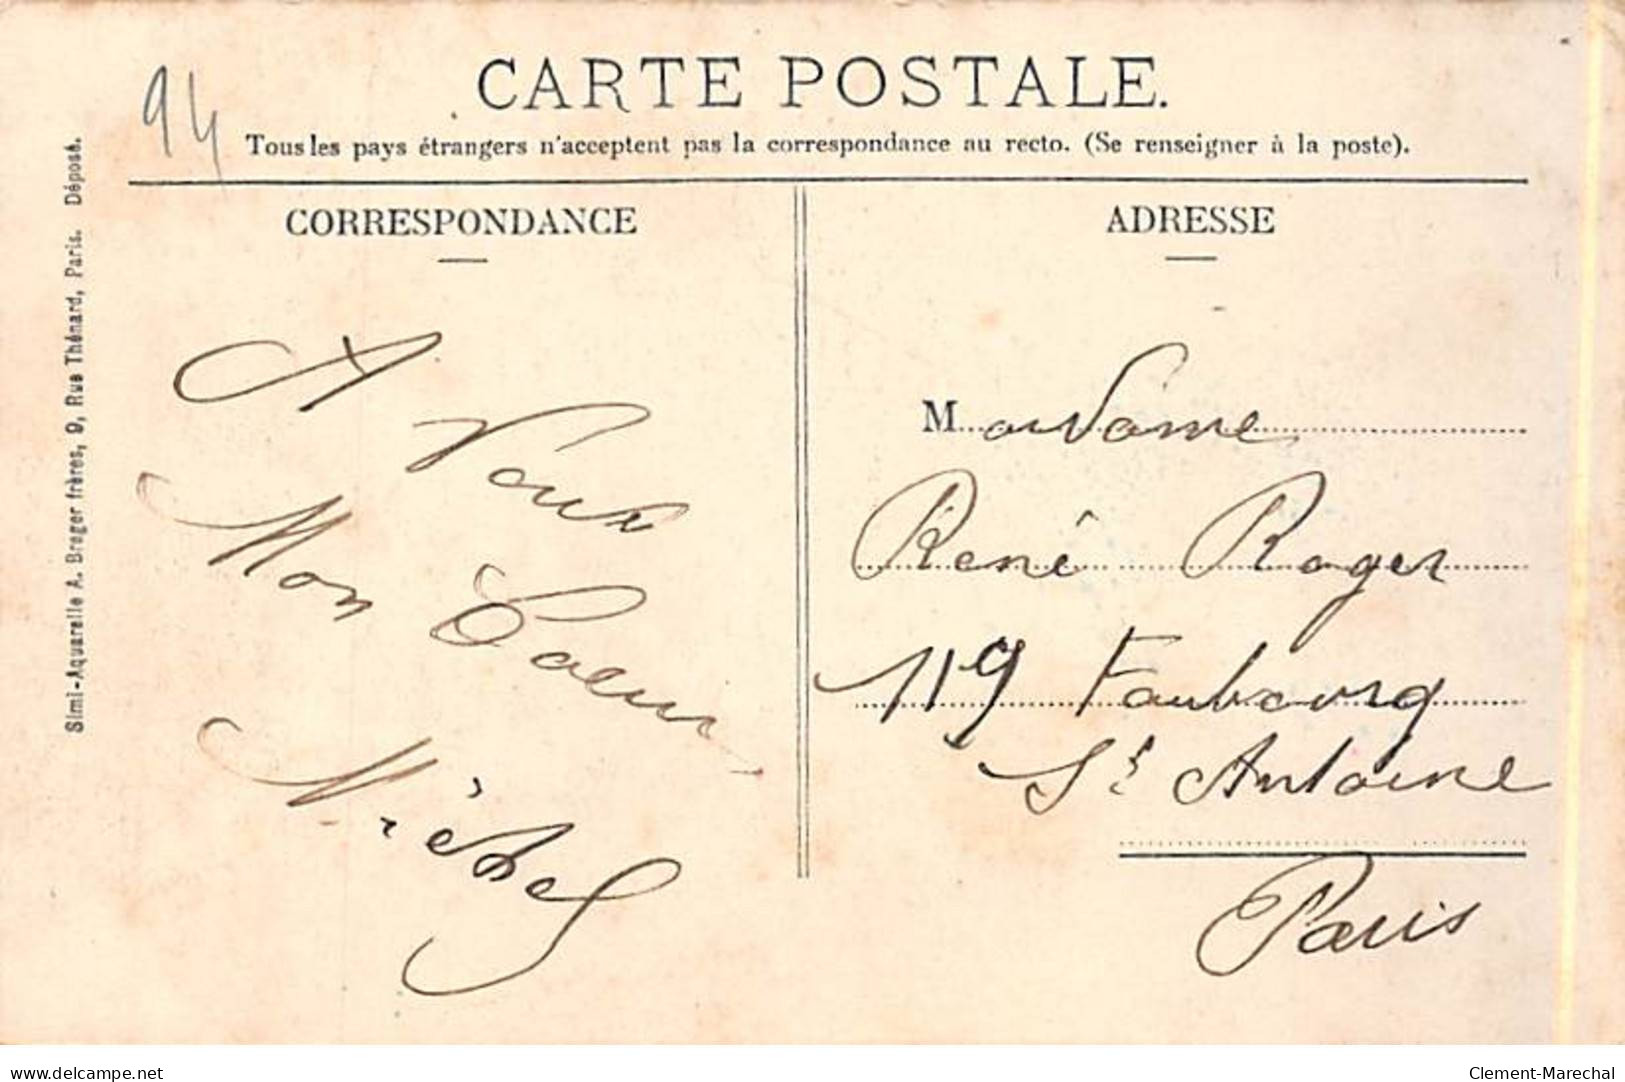 94
CARTE POSTALE.
Tous les pays étrangers n'acceptent pas la correspondance au recto. (Se renseigner à la poste).
Simi-Aquarelle A. Breger frères, 9, Rue Thénard, Paris. Déposé.
CORRESPONDANCE
A Vous
Mon Coeur
Michel
ADRESSE
Madame
René Roger
119 Faubourg
St Antoine
Paris
www.delcampe.net
Clement-Marechal